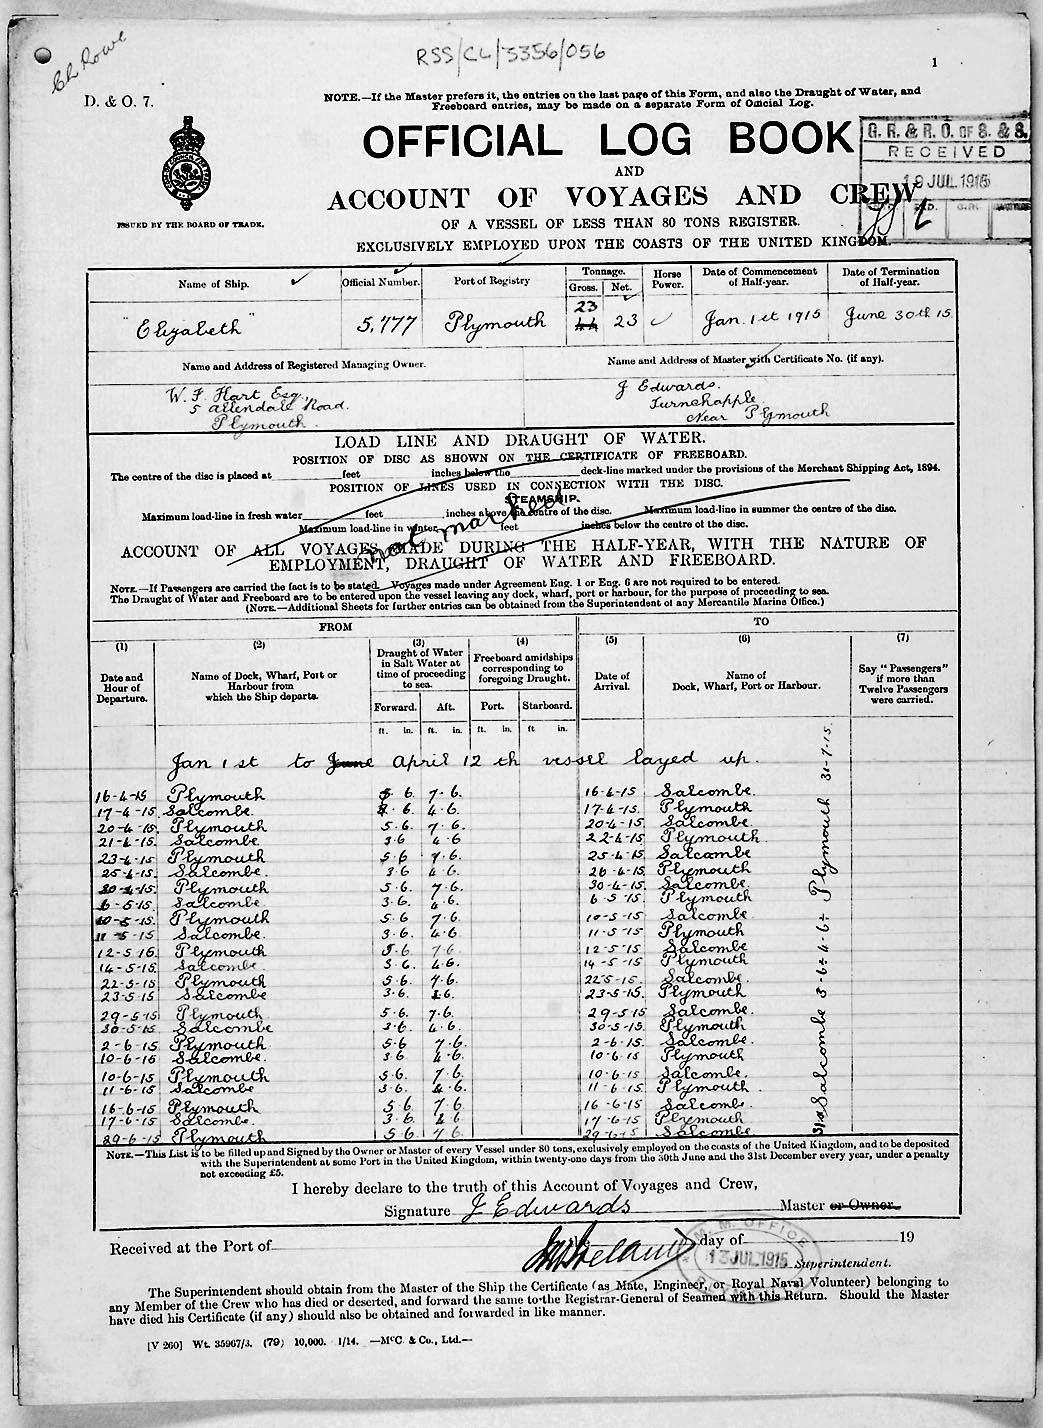 Ch Rowe
RSS/CL/5356/056
1
D. & O. 7.
NOTE.—If the Master prefers it, the entries on the last page of this Form, and also the Draught of Water, and
Freeboard entries, may be made on a separate Form of Official Log.
OFFICIAL LOG BOOK
AND
ACCOUNT OF VOYAGES AND CREW
OF A VESSEL OF LESS THAN 80 TONS REGISTER.
EXCLUSIVELY EMPLOYED UPON THE COASTS OF THE UNITED KINGDOM.
ISSUED BY THE BOARD OF TRADE.
G. R. & R. O. OF S. & S.
RECEIVED
19 JUL 1915
Name of Ship. Official Number. Port of Registry Tonnage. Gross. Net. Horse Power. Date of Commencement of Half-year. Date of Termination of Half-year.
"Elizabeth" 5,777 Plymouth 23 44 23 Jan 1st 1915 June 30th 15
Name and Address of Registered Managing Owner. Name and Address of Master with Certificate No. (if any).
W. F. Hart Esq., J Edwards.
5 Allendale Road. Turnchapple
Plymouth. Near Plymouth
LOAD LINE AND DRAUGHT OF WATER.
POSITION OF DISC AS SHOWN ON THE CERTIFICATE OF FREEBOARD.
The centre of the disc is placed at feet inches below the deck-line marked under the provisions of the Merchant Shipping Act, 1894.
POSITION OF LINES USED IN CONNECTION WITH THE DISC.
STEAMSHIP.
Maximum load-line in fresh water feet inches above the centre of the disc. Maximum load-line in summer the centre of the disc.
Maximum load-line in winter feet inches below the centre of the disc.
not marked
ACCOUNT OF ALL VOYAGES MADE DURING THE HALF-YEAR, WITH THE NATURE OF
EMPLOYMENT, DRAUGHT OF WATER AND FREEBOARD.
NOTE.—If Passengers are carried the fact is to be stated. Voyages made under Agreement Eng. 1 or Eng. 6 are not required to be entered.
The Draught of Water and Freeboard are to be entered upon the vessel leaving any dock, wharf, port or harbour, for the purpose of proceeding to sea.
(NOTE.—Additional Sheets for further entries can be obtained from the Superintendent of any Mercantile Marine Office.)
FROM TO
(1) (2) (3) (4) (5) (6) (7)
Date and Hour of Departure. Name of Dock, Wharf, Port or Harbour from which the Ship departs. Draught of Water in Salt Water at time of proceeding to sea. Freeboard amidships corresponding to foregoing Draught. Date of Arrival. Name of Dock, Wharf, Port or Harbour. Say "Passengers" if more than Twelve Passengers were carried.
Forward. Aft. Port. Starboard.
ft. in. ft. in. ft. in. ft in.
Jan 1st to June April 12th vessel layed up.
16-4-15 Plymouth 5 6. 7.6. 16-4-15 Salcombe.
17-4-15 Salcombe. 3.6. 4.6. 17-4-15. Plymouth
20-4-15. Plymouth 5.6. 7.6. 20-4-15 Salcombe.
21-4-15. Salcombe. 3.6 4.6 22-4-15. Plymouth.
23-4-15 Plymouth 5.6 7.6. 25-4-15 Salcombe
25-4-15. Salcombe. 3.6 4.6. 26-4-15. Plymouth
30-4-15. Plymouth 5.6. 7.6. 30-4-15 Salcombe.
6-5-15. Salcombe. 3.6. 4.6. 6-5-15. Plymouth
10-5-15. Plymouth 5.6 7.6. 10-5-15 Salcombe
11-5-15 Salcombe. 3.6. 4.6. 11-5-15 Plymouth.
12-5-15. Plymouth 5.6 7.6. 12-5-15 Salcombe
14-5-15. Salcombe. 3.6. 4.6. 14-5-15 Plymouth
22-5-15. Plymouth 5.6. 7.6. 22-5-15. Salcombe.
23-5-15 Salcombe 3.6. 4.6. 23-5-15. Plymouth
29-5-15 Plymouth 5.6. 7.6. 29-5-15 Salcombe.
30-5-15 Salcombe 3.6. 4.6. 30-5-15 Plymouth
2-6-15 Plymouth 5.6 7.6. 2-6-15. Salcombe.
10-6-15 Salcombe. 3.6 4.6. 10-6-15 Plymouth
10-6-15 Plymouth 5.6. 7.6. 10-6-15 Salcombe.
11-6-15 Salcombe 3.6. 4.6. 11-6-15. Plymouth.
16-6-15 Plymouth 5.6 7.6. 16-6-15 Salcombe.
17-6-15 Salcombe. 3.6. 4.6 17-6-15 Plymouth
29-6-15 Plymouth 5.6. 7.6. 29-6-15 Salcombe
Salcombe 3-6: 4-6: Plymouth 31-7-15.
NOTE.—This List is to be filled up and Signed by the Owner or Master of every Vessel under 80 tons, exclusively employed on the coasts of the United Kingdom, and to be deposited
with the Superintendent at some Port in the United Kingdom, within twenty-one days from the 30th June and the 31st December every year, under a penalty
not exceeding £5.
I hereby declare to the truth of this Account of Voyages and Crew,
Signature J Edwards Master or Owner.
Received at the Port of day of 19
M. M. OFFICE
13 JUL 1915
Superintendent.
The Superintendent should obtain from the Master of the Ship the Certificate (as Mate, Engineer, or Royal Naval Volunteer) belonging to
any Member of the Crew who has died or deserted, and forward the same to the Registrar-General of Seamen with this Return. Should the Master
have died his Certificate (if any) should also be obtained and forwarded in like manner.
[V 260] Wt. 35967/3. (79) 10,000. 1/14. —McC. & Co., Ltd.—